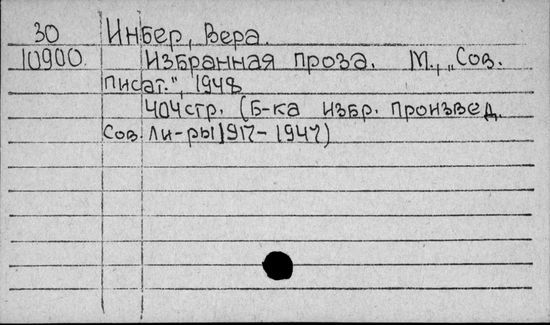 30 Инбер, Вера.
10900. Избранная проза. М., „Сов.
писат.", 1948
404стр. (Б-ка избр. произвед.
Сов. ли-ры 1917-1947)